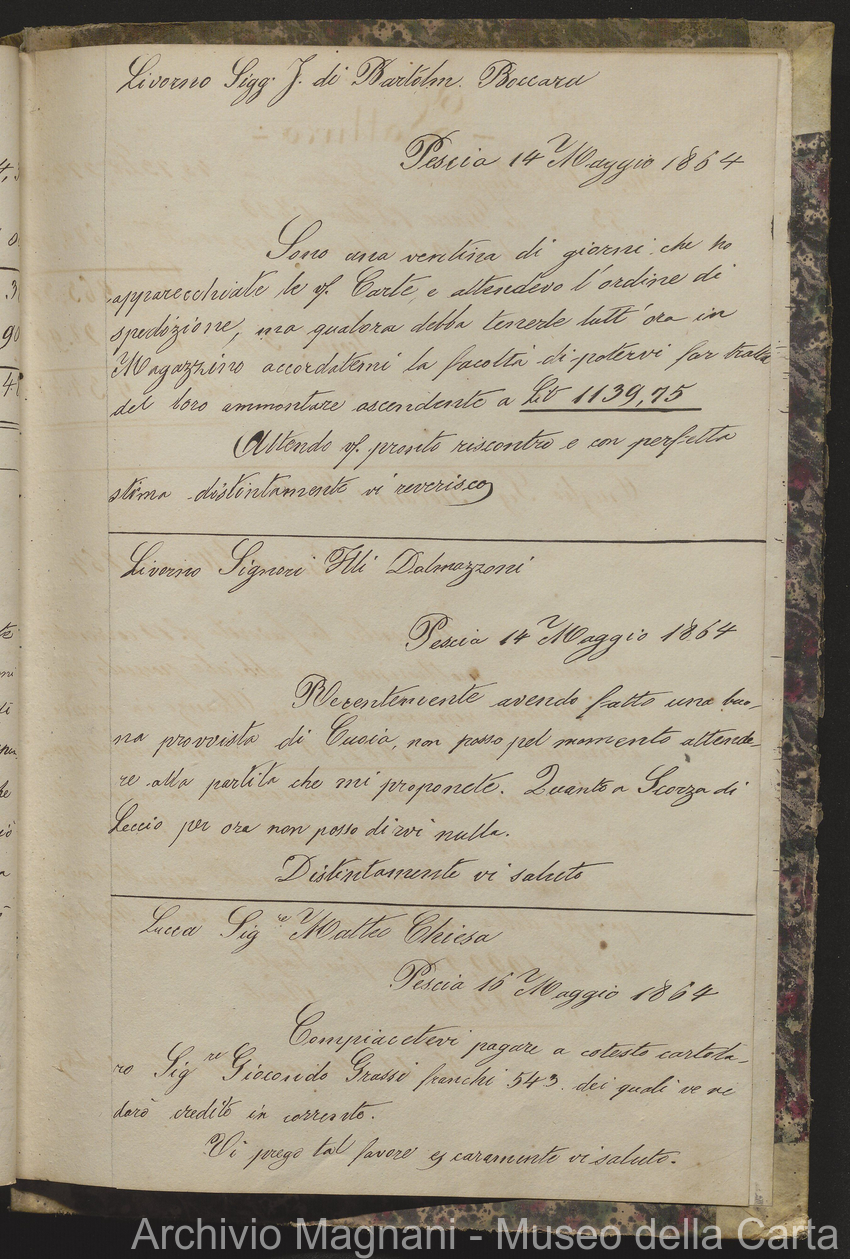 Livorno Sigg.i J. di Bartolm. Boccara
Pescia 14 Maggio 1864
Sono una ventina di giorni che ho
apparecchiate le vs. Carte, e attendevo l'ordine di
spedizione, ma qualora debba tenerle tutt'ora in
Magazzino accordatemi la facoltà di potervi far tratta
del loro ammontare ascendente a Liv 1139,75
Attendo vs. pronto riscontro e con perfetta
stima distintamente vi reverisco
Livorno Signori Flli Dalmazzoni
Pescia 14 Maggio 1864
Recentemente avendo fatto una buo-
na provvista di Cuoia, non posso pel momento attende-
re alla partita che mi proponete. Quanto a Scorza di
Leccio per ora non posso dirvi nulla.
Distintamente vi saluto
Lucca Sig.re Matteo Chiesa
Pescia 16 Maggio 1864
Compiacetevi pagare a cotesto cartola-
ro Sig.re Giocondo Grassi franchi 543. dei quali ve ne
darò credito in corrente.
Vi prego tal favore e caramente vi saluto.
Archivio Magnani - Museo della Carta